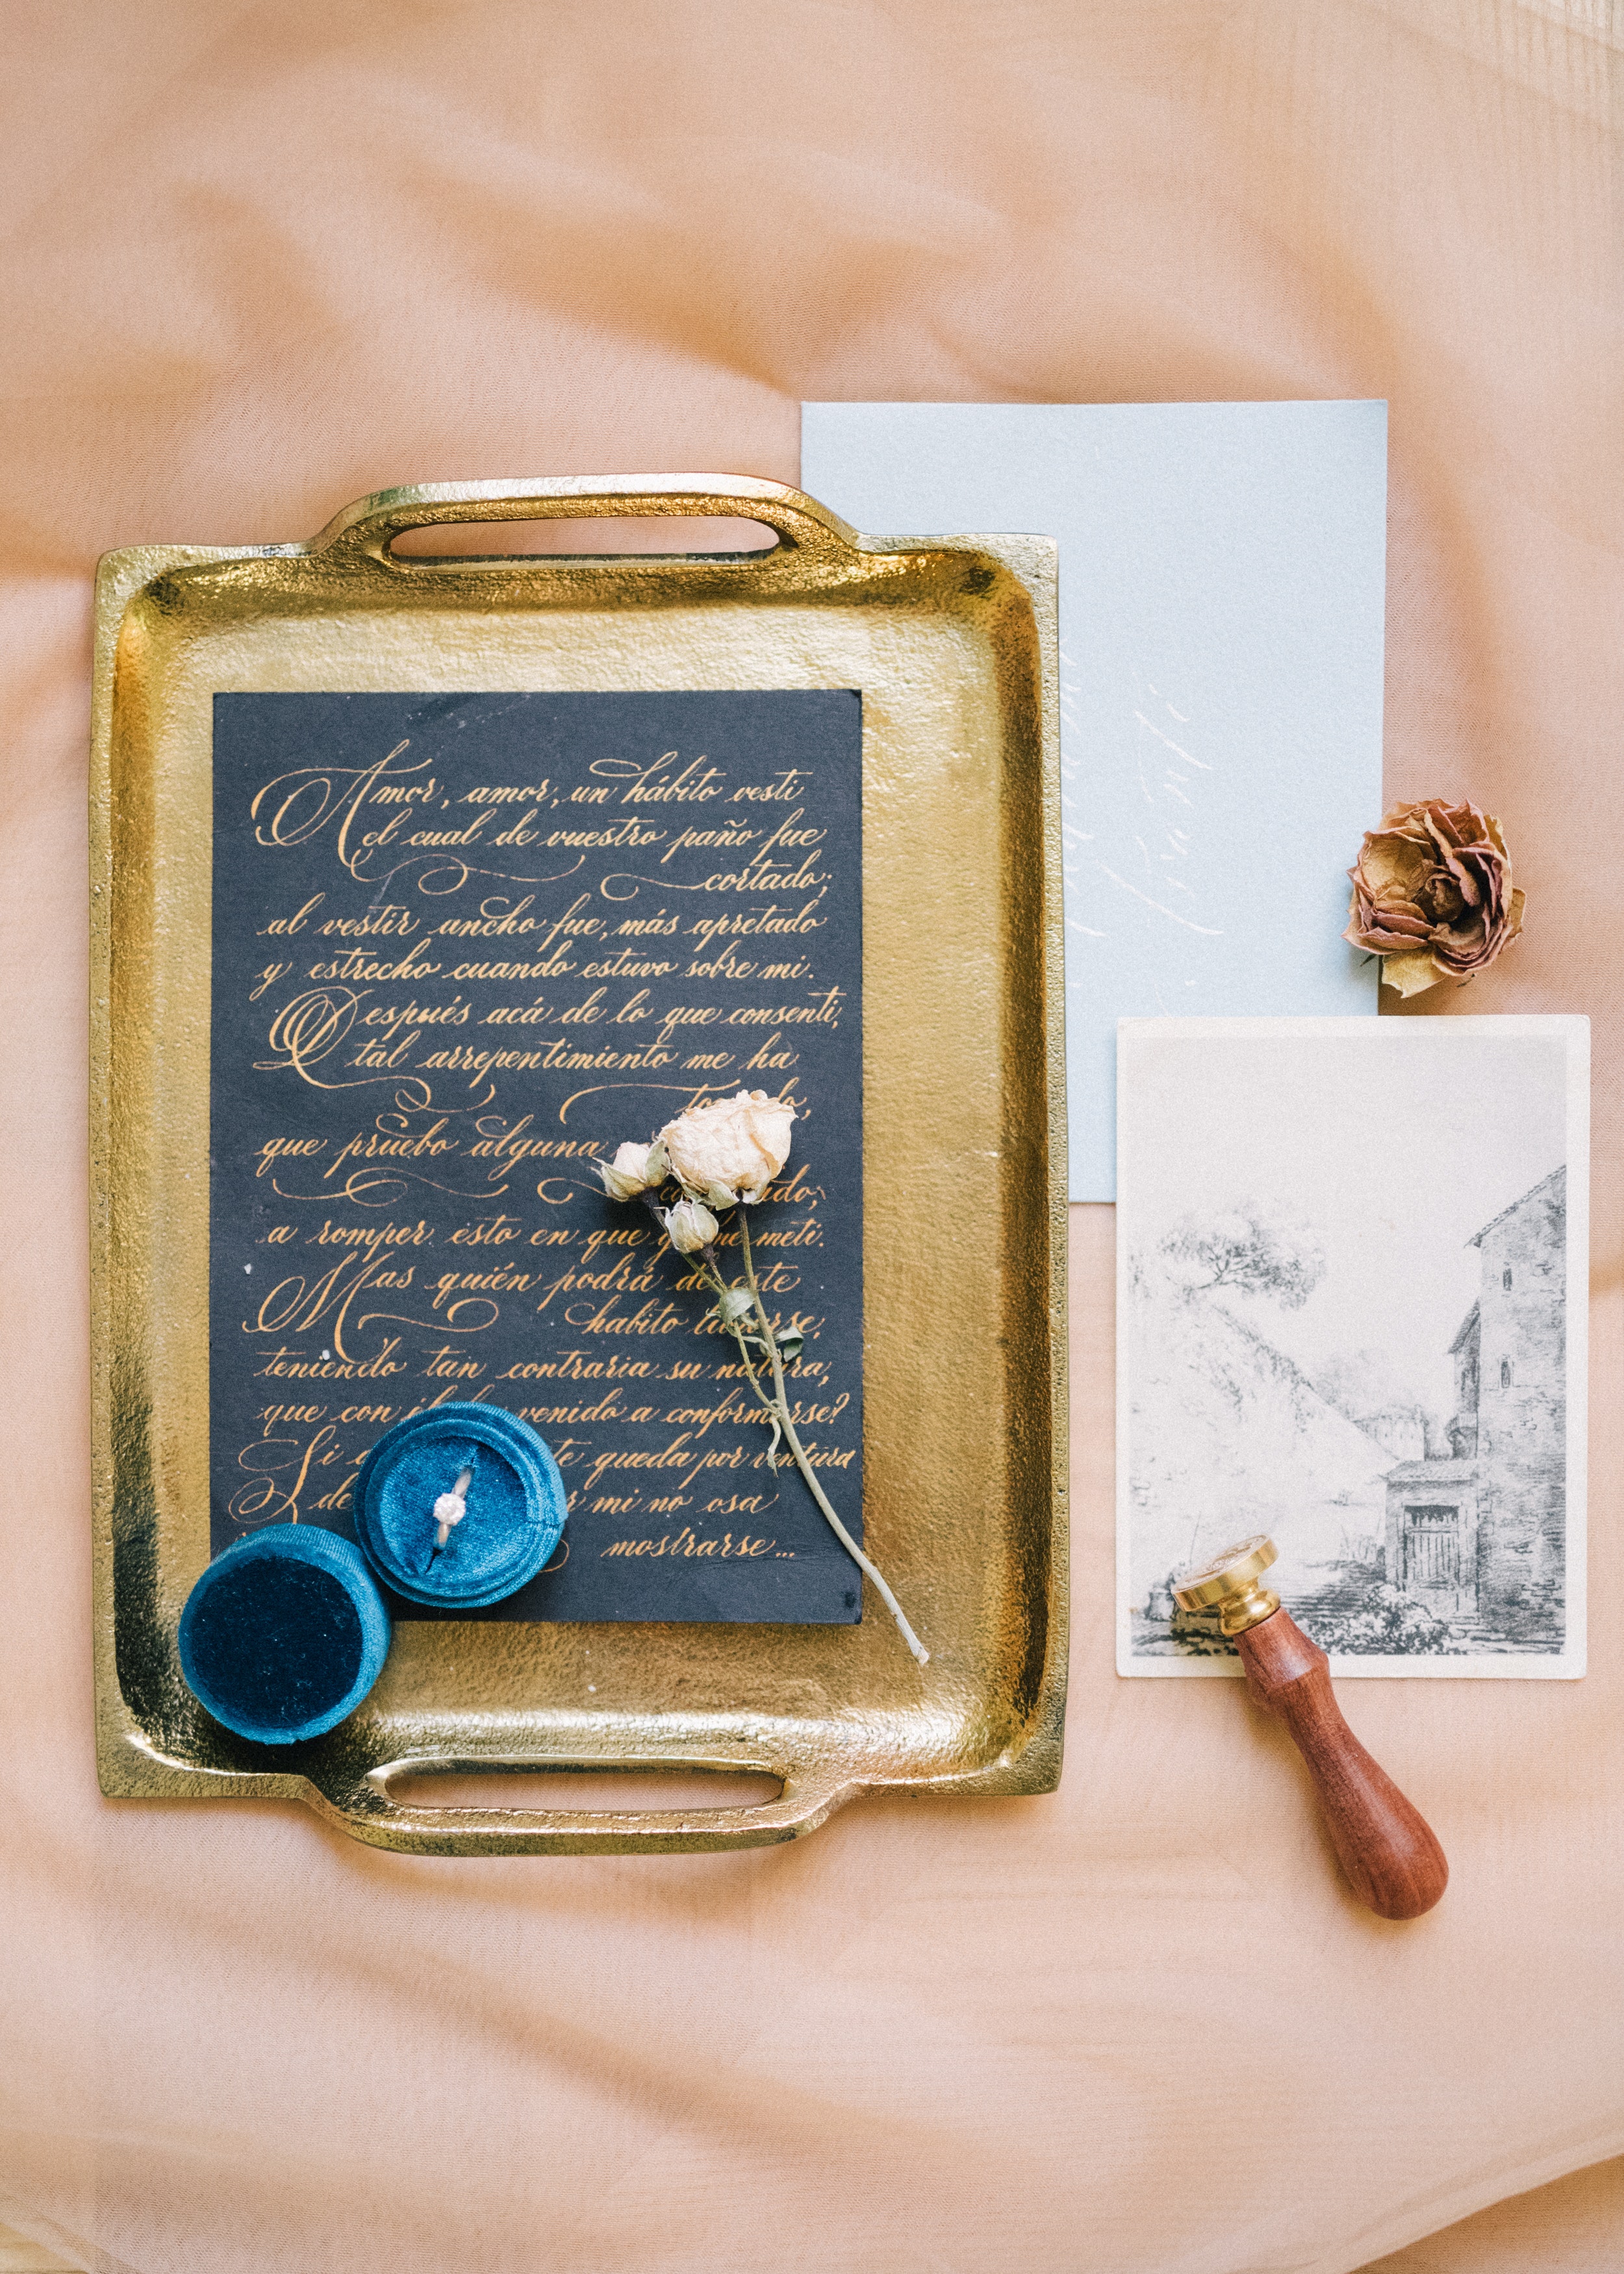 Amor, amor, un hábito vesti
el cual de vuestro paño fue
cortado;
al vestir ancho fue, más apretado
y estrecho cuando estuvo sobre mi.
Después acá de lo que consenti,
tal arrepentimiento me ha
que pruebo alguna
a romper esto en que meti.
Mas quién podrá de este
habito
teniendo tan contraria su natura,
que con venido a conformarse?
Si queda por ventura
de mi no osa
mostrarse...